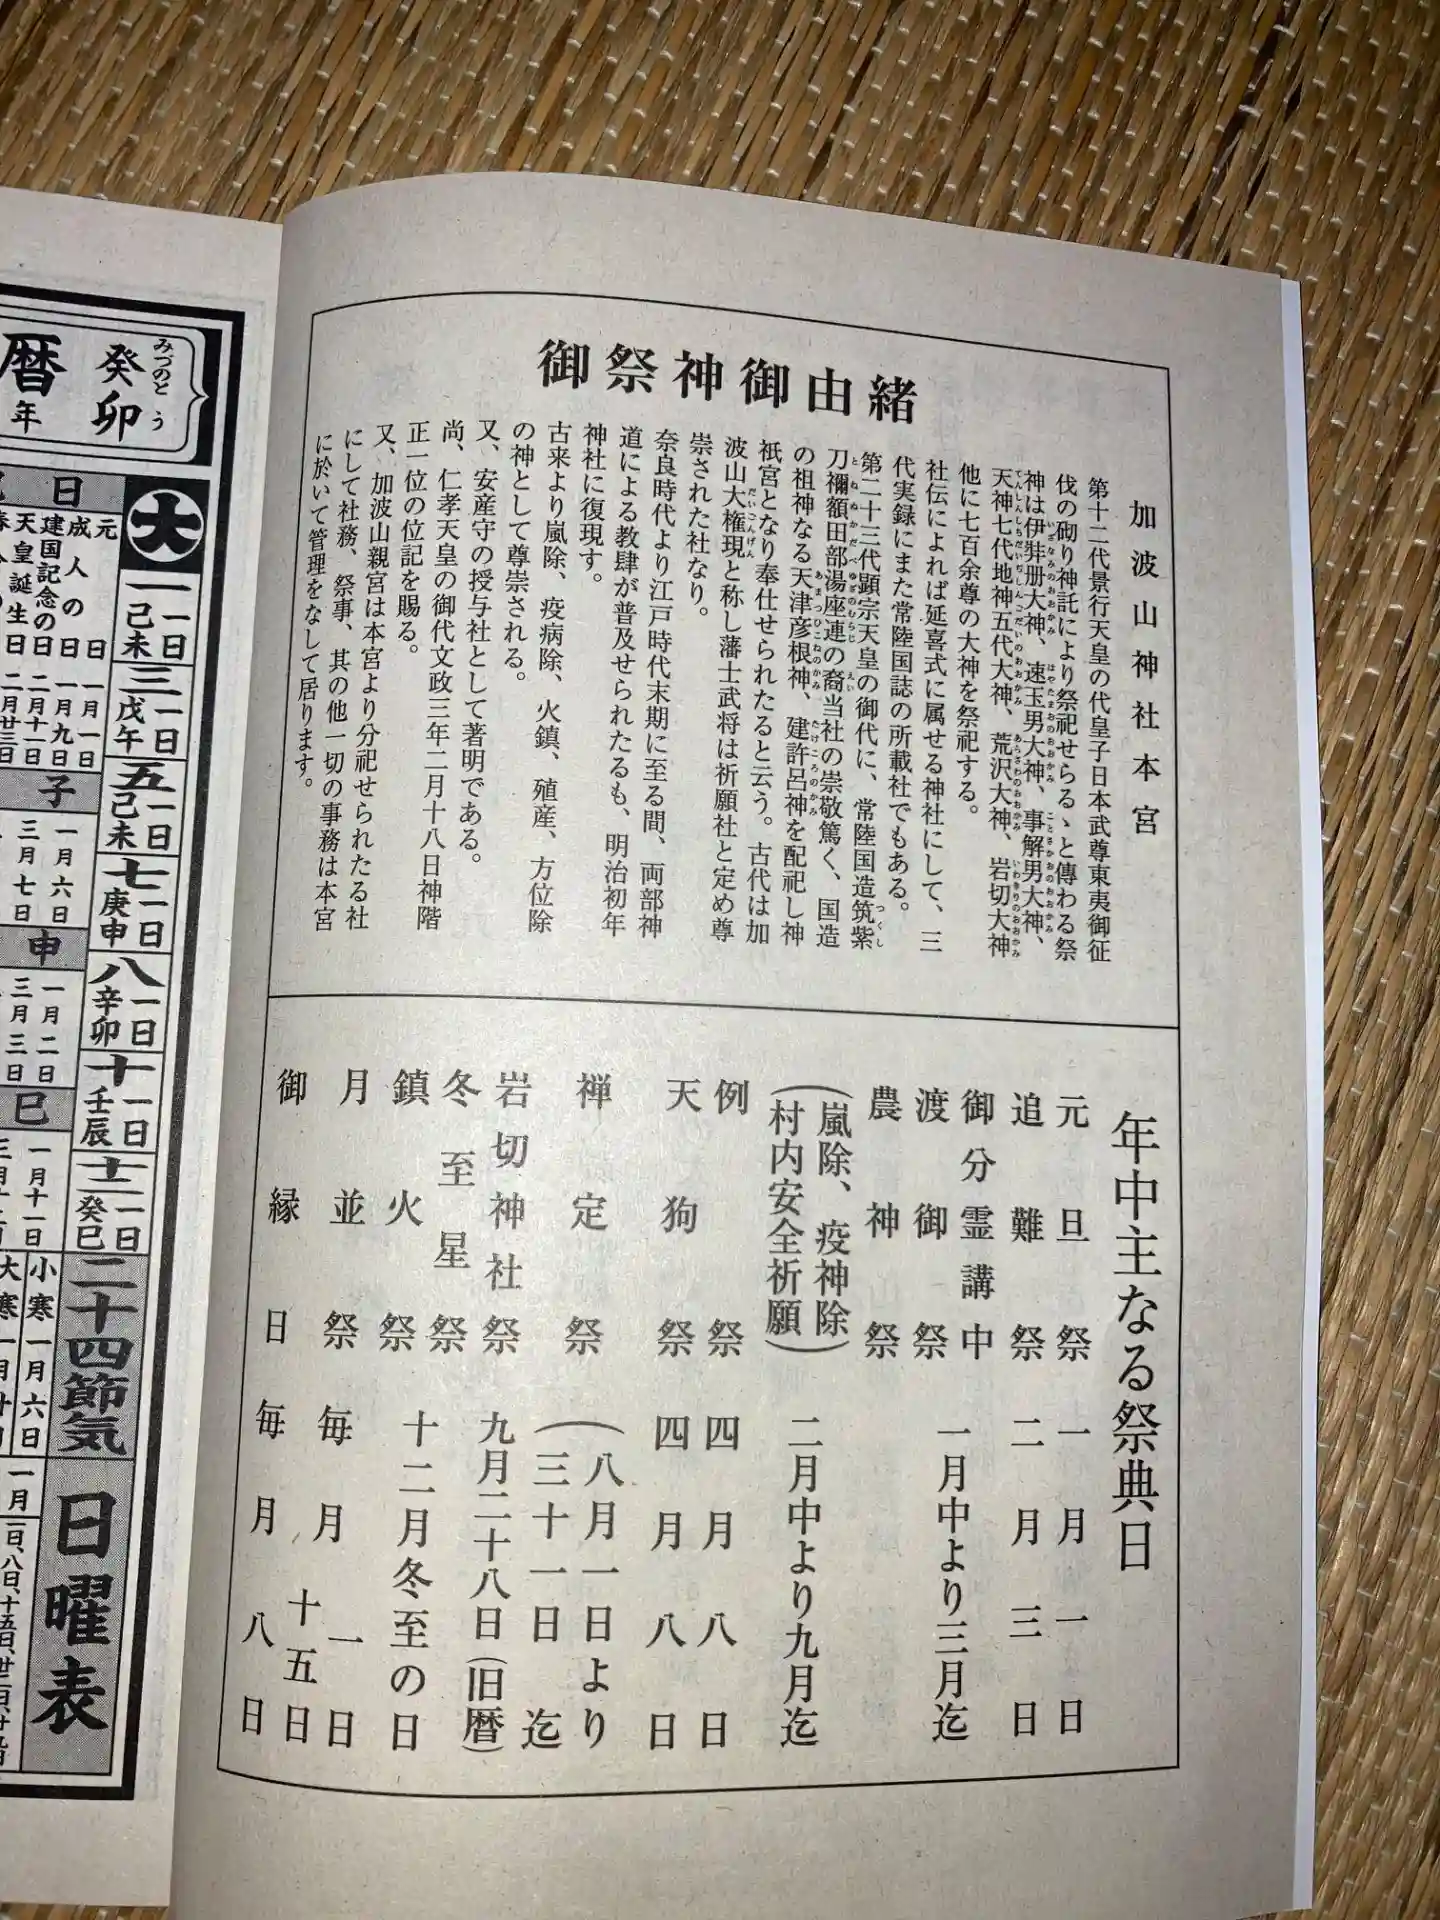 御祭神御由緒
加波山神社本宮
第十二代景行天皇の代皇子日本武尊東夷御征
伐の砌り神託により祭祀せらるゝと傳わる祭
神は伊弉册大神、速玉男大神、事解男大神、
天神七代地神五代大神、荒沢大神、岩切大神
他に七百余尊の大神を祭祀する。
社伝によれば延喜式に属せる神社にして、三
代実録にまた常陸国誌の所載社でもある。
第二十三代顕宗天皇の御代に、常陸国造筑紫
刀禰額田部湯座連の裔当社の崇敬篤く、国造
の祖神なる天津彦根神、建許呂神を配祀し神
祇宮となり奉仕せられたると云う。古代は加
波山大権現と称し藩士武将は祈願社と定め尊
崇された社なり。
奈良時代より江戸時代末期に至る間、両部神
道による教肆が普及せられたるも、明治初年
神社に復現す。
古来より嵐除、疫病除、火鎮、殖産、方位除
の神として尊崇される。
又、安産守の授与社として著明である。
尚、仁孝天皇の御代文政三年二月十八日神階
正一位の位記を賜る。
又、加波山親宮は本宮より分祀せられたる社
にして社務、祭事、其の他一切の事務は本宮
に於いて管理をなして居ります。
年中主なる祭典日
元旦祭 一月一日
追難祭 二月三日
御分霊講中
渡御祭 一月中より三月迄
農神祭
(嵐除、疫神除)
(村内安全祈願) 二月中より九月迄
例祭 四月八日
天狗祭 四月八日
禅定祭 (八月一日より
三十一日迄
岩切神社祭 九月二十八日(旧暦)
冬至星祭
鎮火祭 十二月冬至の日
月並祭 毎月一日
十五日
御縁日 毎月八日
暦
年
癸卯
みづのとう
大
一一日己未
三一日戊午
五一日己未
七一日庚申
八一日辛卯
十一日壬辰
十二一日癸巳
二十四節気
小寒一月六日
日曜表
日
元日 一月一日
成人の日 一月九日
建国記念の日 二月十一日
天皇誕生日 二月廿三日
子
一月六日
三月七日
申
一月二日
三月三日
巳
一月十一日